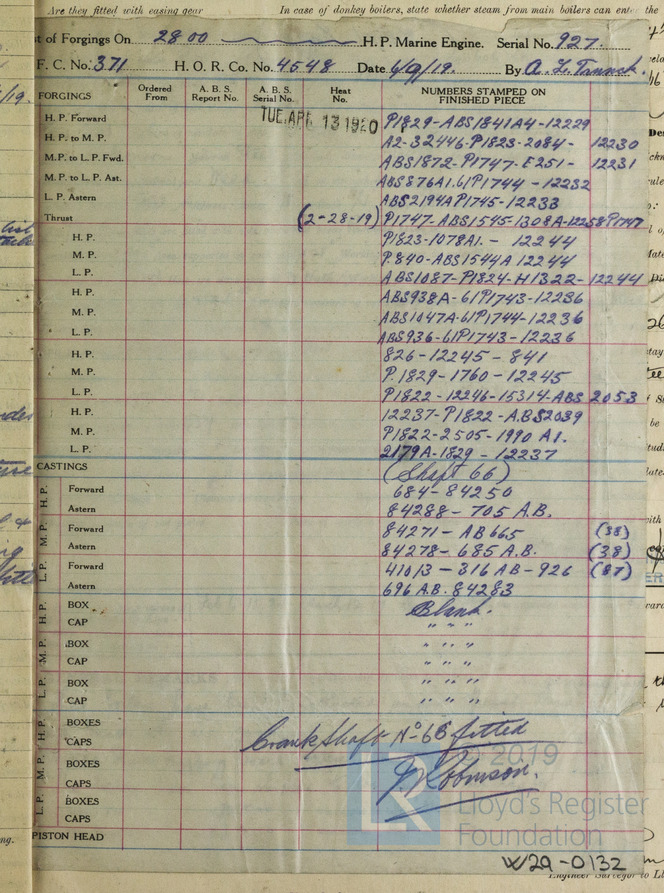 Are they fitted with easing gear In case of donkey boilers, state whether steam from main boilers can enter the
t of Forgings On 2800 H. P. Marine Engine. Serial No. 927.
F. C. No. 371 H. O. R. Co. No. 4548 Date 6/9/19. By A. L.
FORGINGS Ordered From A. B. S. Report No. A. B. S. Serial No. Heat No. NUMBERS STAMPED ON FINISHED PIECE
TUE. APR 13 1920
H. P. Forward P1829-ABS1841A4-12229
H. P. to M. P. A2-32446-P1823-2084- 12230
M. P. to L. P. Fwd. ABS1872-P1747-E251- 12231
M. P. to L. P. Ast. ABS876A1.61P1744-12232
L. P. Astern ABS2194AP1745-12233
Thrust (2-28-19) P1747-ABS1545-1308A-12258P1747
H. P. P1823-1078A1. - 12244
M. P. P.840-ABS1544A 12244
L. P. ABS1087-P1824-H1322-12244
H. P. ABS938A-61P1743-12236
M. P. ABS1047A-61P1744-12236
L. P. ABS936-61P1743-12236
H. P. 826-12245-841
M. P. P.1829-1760-12245
L. P. P1822-12246-15314-ABS 2053
H. P. 12237-P1822-ABS2039
M. P. P1822-2505-1990 A1.
L. P. 2179A-1829-12237
CASTINGS (Shaft 66)
H. P. Forward 684-84250
Astern 84288-705 A.B.
M. P. Forward 84271-AB665 (38)
Astern 84278-685 A.B. (38)
L. P. Forward 41013-316 AB-926 (87)
Astern 696 A.B. 84283
H. P. BOX Blank.
CAP " " "
M. P. BOX " " "
CAP " " "
L. P. BOX " " "
CAP " " "
H. P. BOXES Crank Shaft No 66 fitted
CAPS
M. P. BOXES
CAPS
L. P. BOXES
CAPS
PISTON HEAD
© 2019
LR
Lloyd's Register
Foundation
W29-0132
Engineer Surveyor to Ll